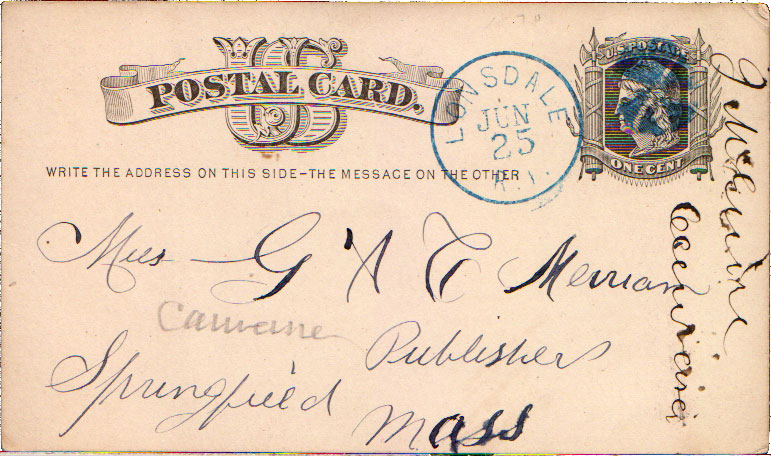 US
POSTAL CARD.
WRITE THE ADDRESS ON THIS SIDE-THE MESSAGE ON THE OTHER
LONSDALE
JUN
25
R.I.
U.S. POSTAGE
ONE CENT
G & C Merriam
Publishers
Springfield
Mass